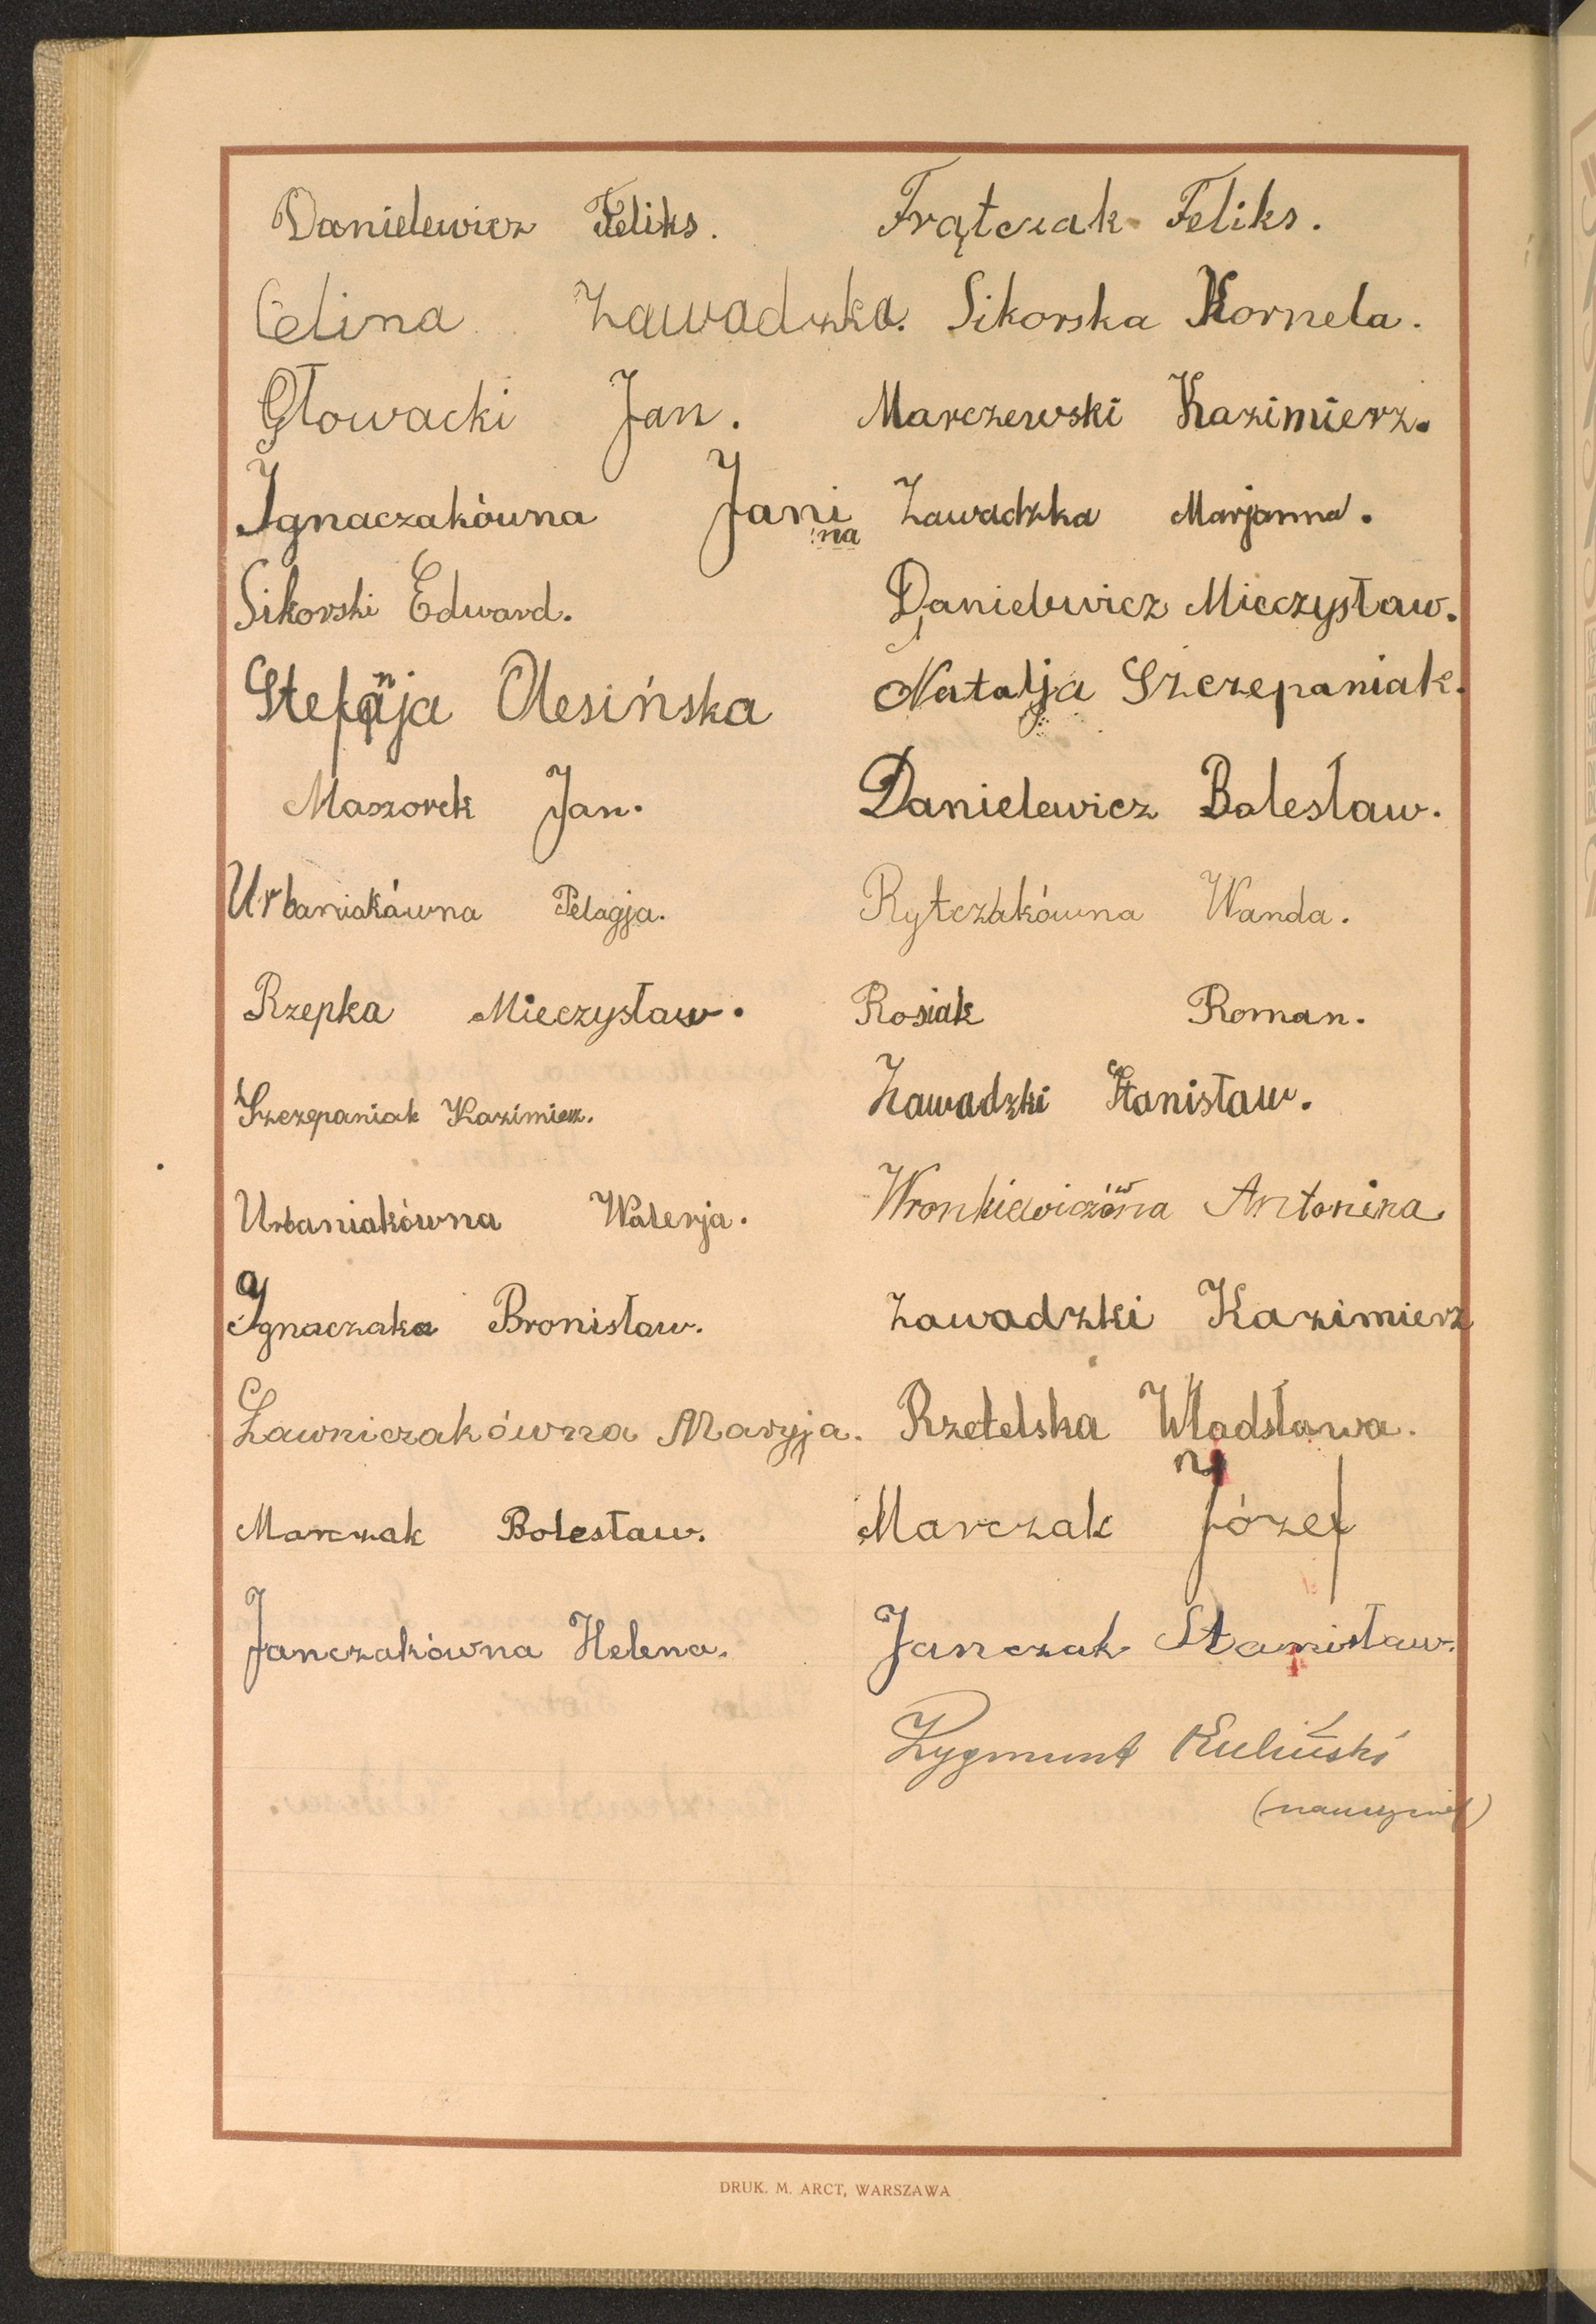 Danielewicz Feliks. Frątczak Feliks.
Celina Zawadzka. Sikorska Kornela.
Głowacki Jan. Marczewski Kazimierz.
Ignaczakówna Janina Zawadzka Marjanna.
Sikorski Edward. Danielewicz Mieczysław.
Stefanja Olesińska Natalja Szczepaniak.
Maszorek Jan. Danielewicz Bolesław.
Urbaniakówna Pelagja. Rytczakówna Wanda.
Rzepka Mieczysław. Rosiak Roman.
Szczepaniak Kazimierz. Zawadzki Stanisław.
Urbaniakówna Walerja. Wronkiewiczówna Antonina
Ignaczak Bronisław. Zawadzki Kazimierz
Ławniczakówna Maryja. Rzetelska Władsława.
Marczak Bolesław. Marczak Józef
Janczakówna Helena. Janczak Stanisław.
Zygmunt Kuliński
(nauczyciel)
DRUK. M. ARCT, WARSZAWA